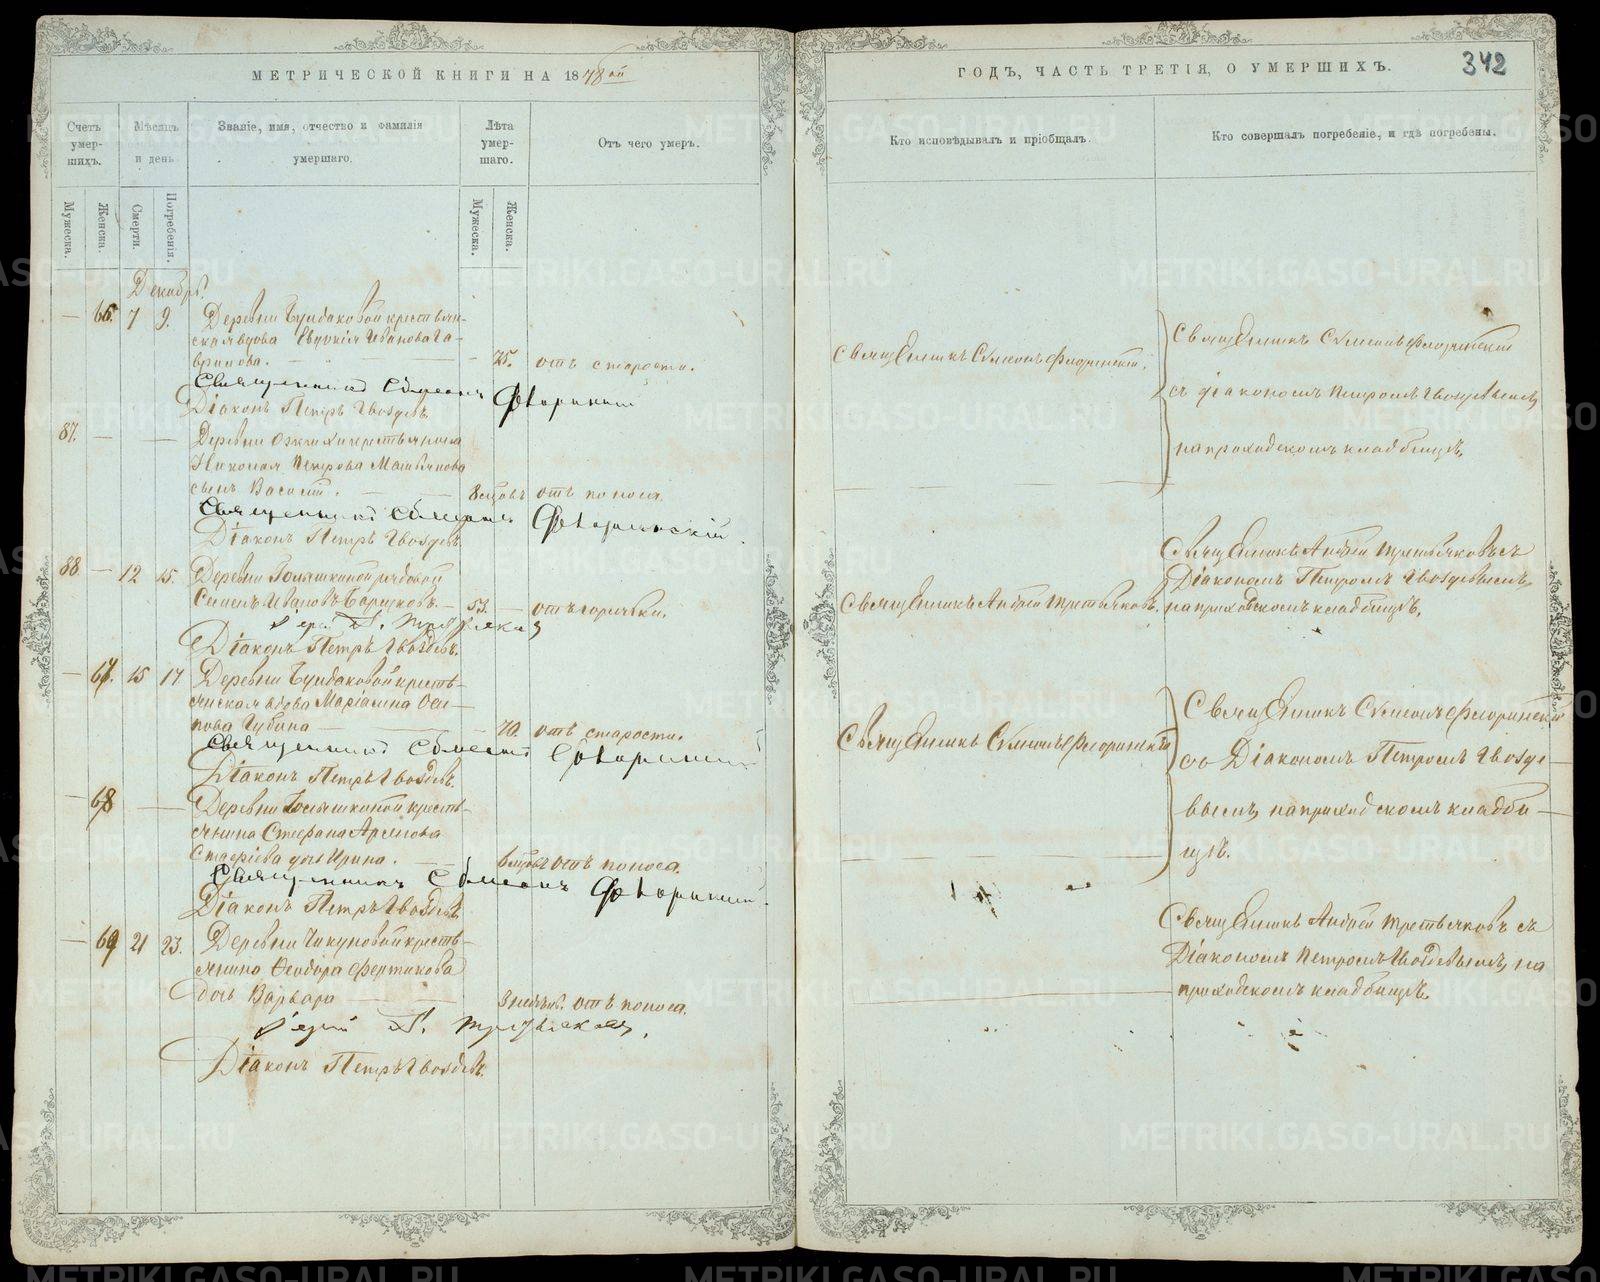 МЕТРИЧЕСКОЙ КНИГИ НА 1878 ой
ГОДЪ, ЧАСТЬ ТРЕТІЯ, О УМЕРШИХЪ.
342
Счетъ умер-шихъ.
Мѣсяцъ и день
Званіе, имя, отчество и фамилія умершаго.
Лѣта умер-шаго.
Отъ чего умеръ.
Кто исповѣдывалъ и пріобщалъ.
Кто совершалъ погребеніе, и гдѣ погребены.
Мужеска.
Женска.
Смерти.
Погребенія.
Мужеска.
Женска.
Декабрь.
— 66. 7 9. Деревни Бурдаковой крестьян-
ская вдова Ивановa Га-
врилова. — 75. отъ старости.
Священникъ Симеонъ Флоринскій
Діаконъ Петръ Гвоздевъ.
Священникъ Симеонъ Флоринскій.
Священникъ Симеонъ Флоринскій
съ діакономъ Петромъ Гвоздевымъ,
на приходскомъ кладбищѣ.
87. — — Деревни крестьянина
Николая Петрова
сынъ Василій. — 8 мцовъ отъ поноса.
Священникъ Симеонъ Флоринскій.
Діаконъ Петръ Гвоздевъ.
88. — 12 15. Деревни рядовой
Семенъ Ивановъ — 53. — отъ горячки.
Іерей А. Третьяковъ
Діаконъ Петръ Гвоздевъ.
Священникъ Андрей Третьяковъ.
Священникъ Андрей Третьяковъ съ
Діакономъ Петромъ Гвоздевымъ,
на приходскомъ кладбищѣ.
— 67. 15 17 Деревни Бурдаковой кресть-
янская вдова Маріамна Оси-
пова Губина — 70. отъ старости.
Священникъ Симеонъ Флоринскій
Діаконъ Петръ Гвоздевъ.
Священникъ Симеонъ Флоринскій
Священникъ Симеонъ Флоринскій
со Діакономъ Петромъ Гвозде-
вымъ, на приходскомъ кладби-
щѣ.
— 68 — Деревни кресть-
янина Стефана
дочь Ирина. — 6 мцовъ отъ поноса.
Священникъ Симеонъ Флоринскій.
Діаконъ Петръ Гвоздевъ.
— 69 21 23. Деревни Чикуновой кресть-
янина Ѳеодора Фертикова
дочь Варвара — 3 недѣль. отъ поноса.
Іерей А. Третьяковъ.
Діаконъ Петръ Гвоздевъ.
Священникъ Андрей Третьяковъ съ
Діакономъ Петромъ Гвоздевымъ, на
приходскомъ кладбищѣ.
METRIKI.GASO-URAL.RU